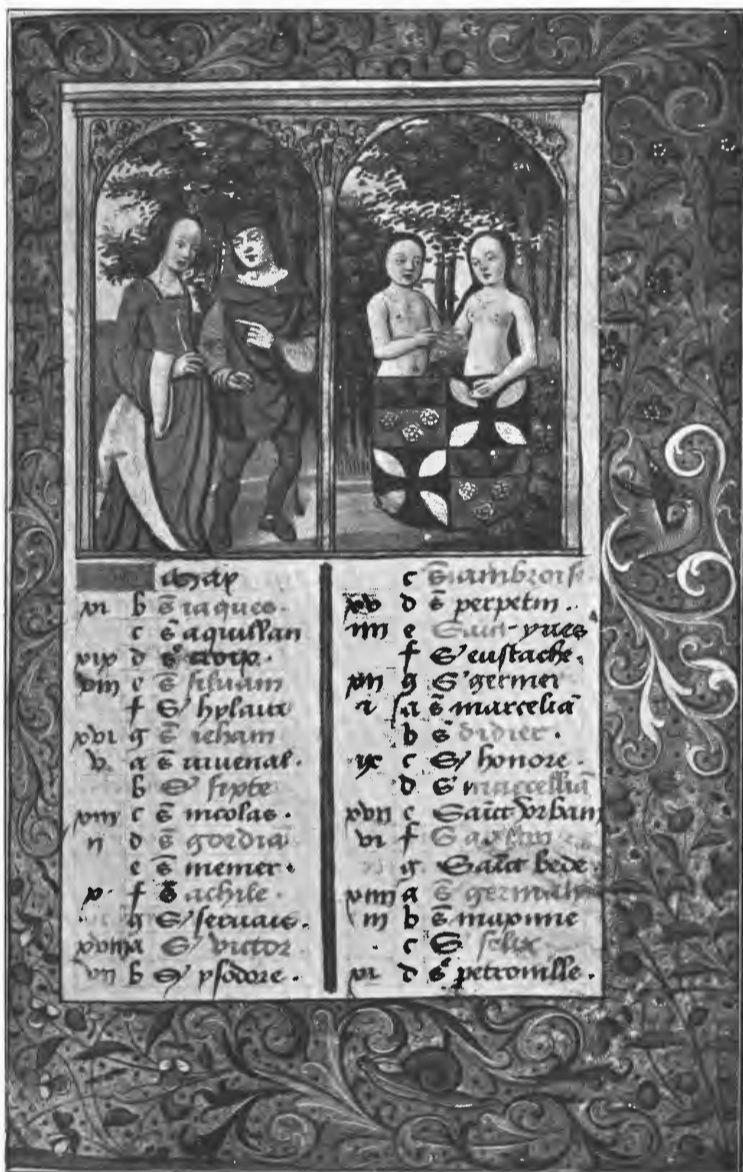 may
vi b s̄ iaques.
c s̄ aquillan
xix d sᵉ croix.
viii e s̄ siluain
f S' hylaire
xvi g s̄ iehan
v. a s̄ iuuenal.
b S' sixte
xiii c s̄ nicolas.
ii d s̄ gordiā
e s̄ memer.
x. f s̄ achile.
g S' seruais.
xviii a S' victor
vii b S' ysodore.
c s̄ ambroise.
xv d s̄ perpetin.
iiii e Saint yues
f S' eustache.
xii g S' germer
i a s̄ marceliā
b s̄ didier.
ix c S' honore.
d S' marcelliā
xvii c Saīct Vrbain
vi f S
g Saīct bede.
xiiii a S germain
iii b s̄ maxime
c S felix
xi d sᵉ petronille.